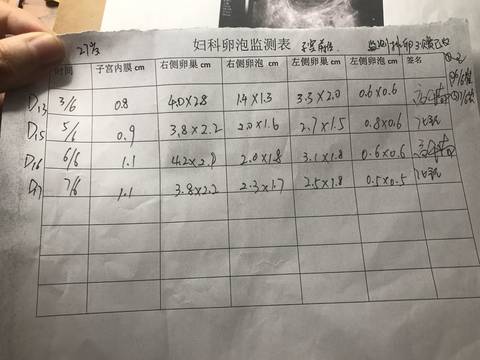 妇科卵泡监测表
时间 子宫内膜 cm 右侧卵巢 cm 右侧卵泡 cm 左侧卵巢 cm 左侧卵泡 cm 签名
D13 3/6 0.8 4.0×2.8 1.4×1.3 3.3×2.0 0.6×0.6
D15 5/6 0.9 3.8×2.2 2.0×1.6 2.7×1.5 0.8×0.6
D16 6/6 1.1 4.2×2.9 2.0×1.8 3.1×1.8 0.6×0.6
D17 7/6 1.1 3.8×2.2 2.3×1.7 2.5×1.8 0.5×0.5